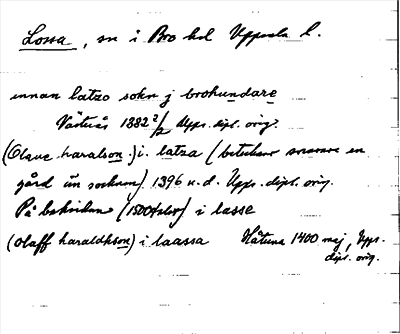 Lossa, sn i Bro hd Uppsala l.
innan latzo sokn j brohundare
Västerås 1382 2/2 Upps. dipl. orig.
(Olaue haralson) i. latza (betecknar snarare en
gård än socknen) 1396 u.d. Upps. dipl. orig.
På baksidan (1500talet) i lasse
(Olaff haraldhson) i laassa Håtuna 1400 maj, Upps.
dipl. orig.